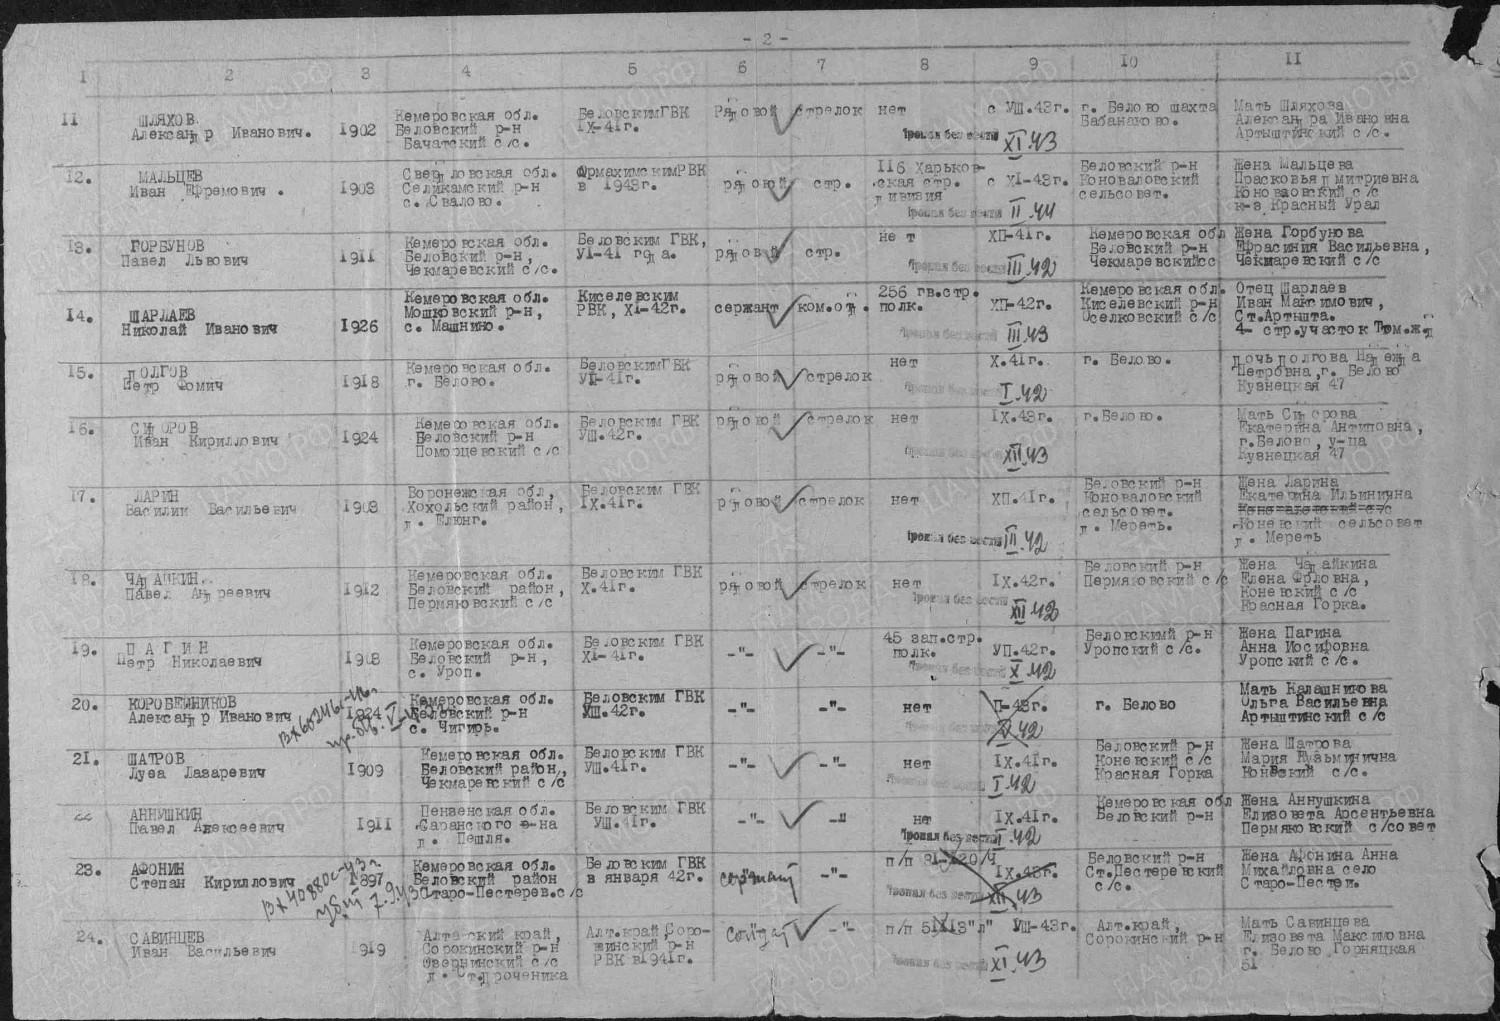 - 2 -
1 2 3 4 5 6 7 8 9 10 11
11 ШЛЯХОВ Александр Иванович. 1902 Кемеровская обл. Беловский р-н Бачатский с/с. БеловскимГВК IX-41г. Рядовой стрелок нет с УШ.43г. г. Белово шахта Бабанаково. Мать Шляхова Александра Ивановна Артыштинский с/с.
Пропал без вести XI.43
12. МАЛЬЦЕВ Иван Ефремович. 1903 Свердловская обл. Селикамский р-н с. Свалово. ФрмахимскимРВК в 1943г. рядовой стр. 116 Харьковская стр. дивизия с XI-43г. Беловский р-н Коноваловский сельсовет. Жена Мальцева Прасковья Дмитриевна Коноваовский с/с к-з Красный Урал
Пропал без вести II.44
13. ГОРБУНОВ Павел Львович 1911 Кемеровская обл. Беловский р-н, Чекмаревский с/с. Беловским ГВК, УI-41 года. рядовй стр. нет ХП-41г. Кемеровская обл Беловский р-н Чекмаревскийсс Жена Горбунова Ефрасиния Васильевна, Чекмаревский с/с
Пропал без вести III.42
14. ШАРЛАЕВ Николай Иванович 1926 Кемеровская обл. Мошковский р-н, с. Машнино. Киселевским РВК, XI-42г. сержант ком.отд. 256 гв.стр. полк. ХП-42г. Кемеровская обл. Киселевский р-н Оселковский с/с Отец Шарлаев Иван Максимович, Ст.Артышта. 4- стр.участок Том.ж.д
Пропал без вести III.43
15. ДОЛГОВ Петр Фомич 1918 Кемеровская обл. г. Белово. БеловскимГВК УI-41г. рядовой стрелок нет Х.41г. г. Белово. Дочь Долгова Надежда Петровна,г. Белово Кузнецкая 47
Пропал без вести I.42
16. СИДОРОВ Иван Кириллович 1924 Кемеровская обл. Беловский р-н Поморцевский с/с Беловским ГВК УШ.42г. рядовой стрелок нет IX.43г. г.Белово. Мать Сидорова Екатерина Антиповна, г.Белово, у-ца Кузнецкая 47
Пропал без вести XII.43
17. ЛАРИН Василии Васильевич 1903 Воронежская обл, Хохольский район, д. Елюнг. Беловским ГВК IX.41г. рядовой стрелок нет ХП.41г. Беловский р-н Коноваловский сельсовет. д. Мереть. Жена Ларина Екатерина Ильинична Коневский сельсовет д. Мереть
Пропал без вести III.42
18. ЧАДАЙКИН. Павел Андреевич 1912 Кемеровская обл. Беловский район, Пермяковский с/с Беловским ГВК Х.41г. рядовой стрелок нет IX.42г. Беловский р-н Пермяковский с/с Жена Чадайкина Елена Фрловна, Коневский с/с Красная Горка.
Пропал без вести XII.42
19. ПАГИН Петр Николаевич 1908 Кемеровская обл. Беловский р-н, с. Уроп. Беловским ГВК XI-41г. -"- -"- 45 зап.стр. полк. УП.42г. Беловскимй р-н Уропский с/с. Жена Пагина Анна Иосифовна Уропский с/с.
Пропал без вести X.42
20. КОРОБЕЙНИКОВ Александр Иванович 1924 Кемеровская обл. Беловский р-н с. Чигирь. Беловским ГВК УШ.42г. -"- -"- нет П-43г. г. Белово Мать Калашникова Ольга Васильевна Артыштинский с/с
21. ШАТРОВ Луеа Лазаревич 1909 Кемеровская обл. Беловский район,, Чекмаревский с/с Беловским ГВК УШ.41г. -"- -"- нет IX.41г. Беловский р-н Коневский с/с Красная Горка Жена Шатрова Мария Кузьминична Коневский с/с.
Пропал без вести I.42
22 АННУШКИН Павел Алексеевич 1911 Пензенская обл. Саранского р-на д. Пешля. Беловским ГВК УШ.41г. -"- -" нет IX.41г. Кемеровская обл Беловский р-н Жена Аннушкина Елизовета Арсентьевна Пермяковский с/совет
Пропал без вести I.42
23. АФОНИН Степан Кириллович 1897 Кемеровская обл. Беловский район Старо-Пестерев.с/с Беловским ГВК в января 42г. сержант -"- п/п IX.43г. Беловский р-н Ст.Пестеревский с/с. Жена Афонина Анна Михайловна село Старо-Пестри.
Вх 40880с-43г убит 7.9.43
Пропал без вести XII.43
24. САВИНЦЕВ Иван Васильевич 1919 Алтайский край, Сорокинский р-н Озернинский с/с д. Ст.дроченика Алт.край,Сорокинский р-н РВК в1941г. Солдат -"- п/п УШ-43г. Алт.край, Сорокинский р-н Мать Савинцева Елизовета Максимовна г. Белово Горняцкая 51
Пропал без вести XI.43